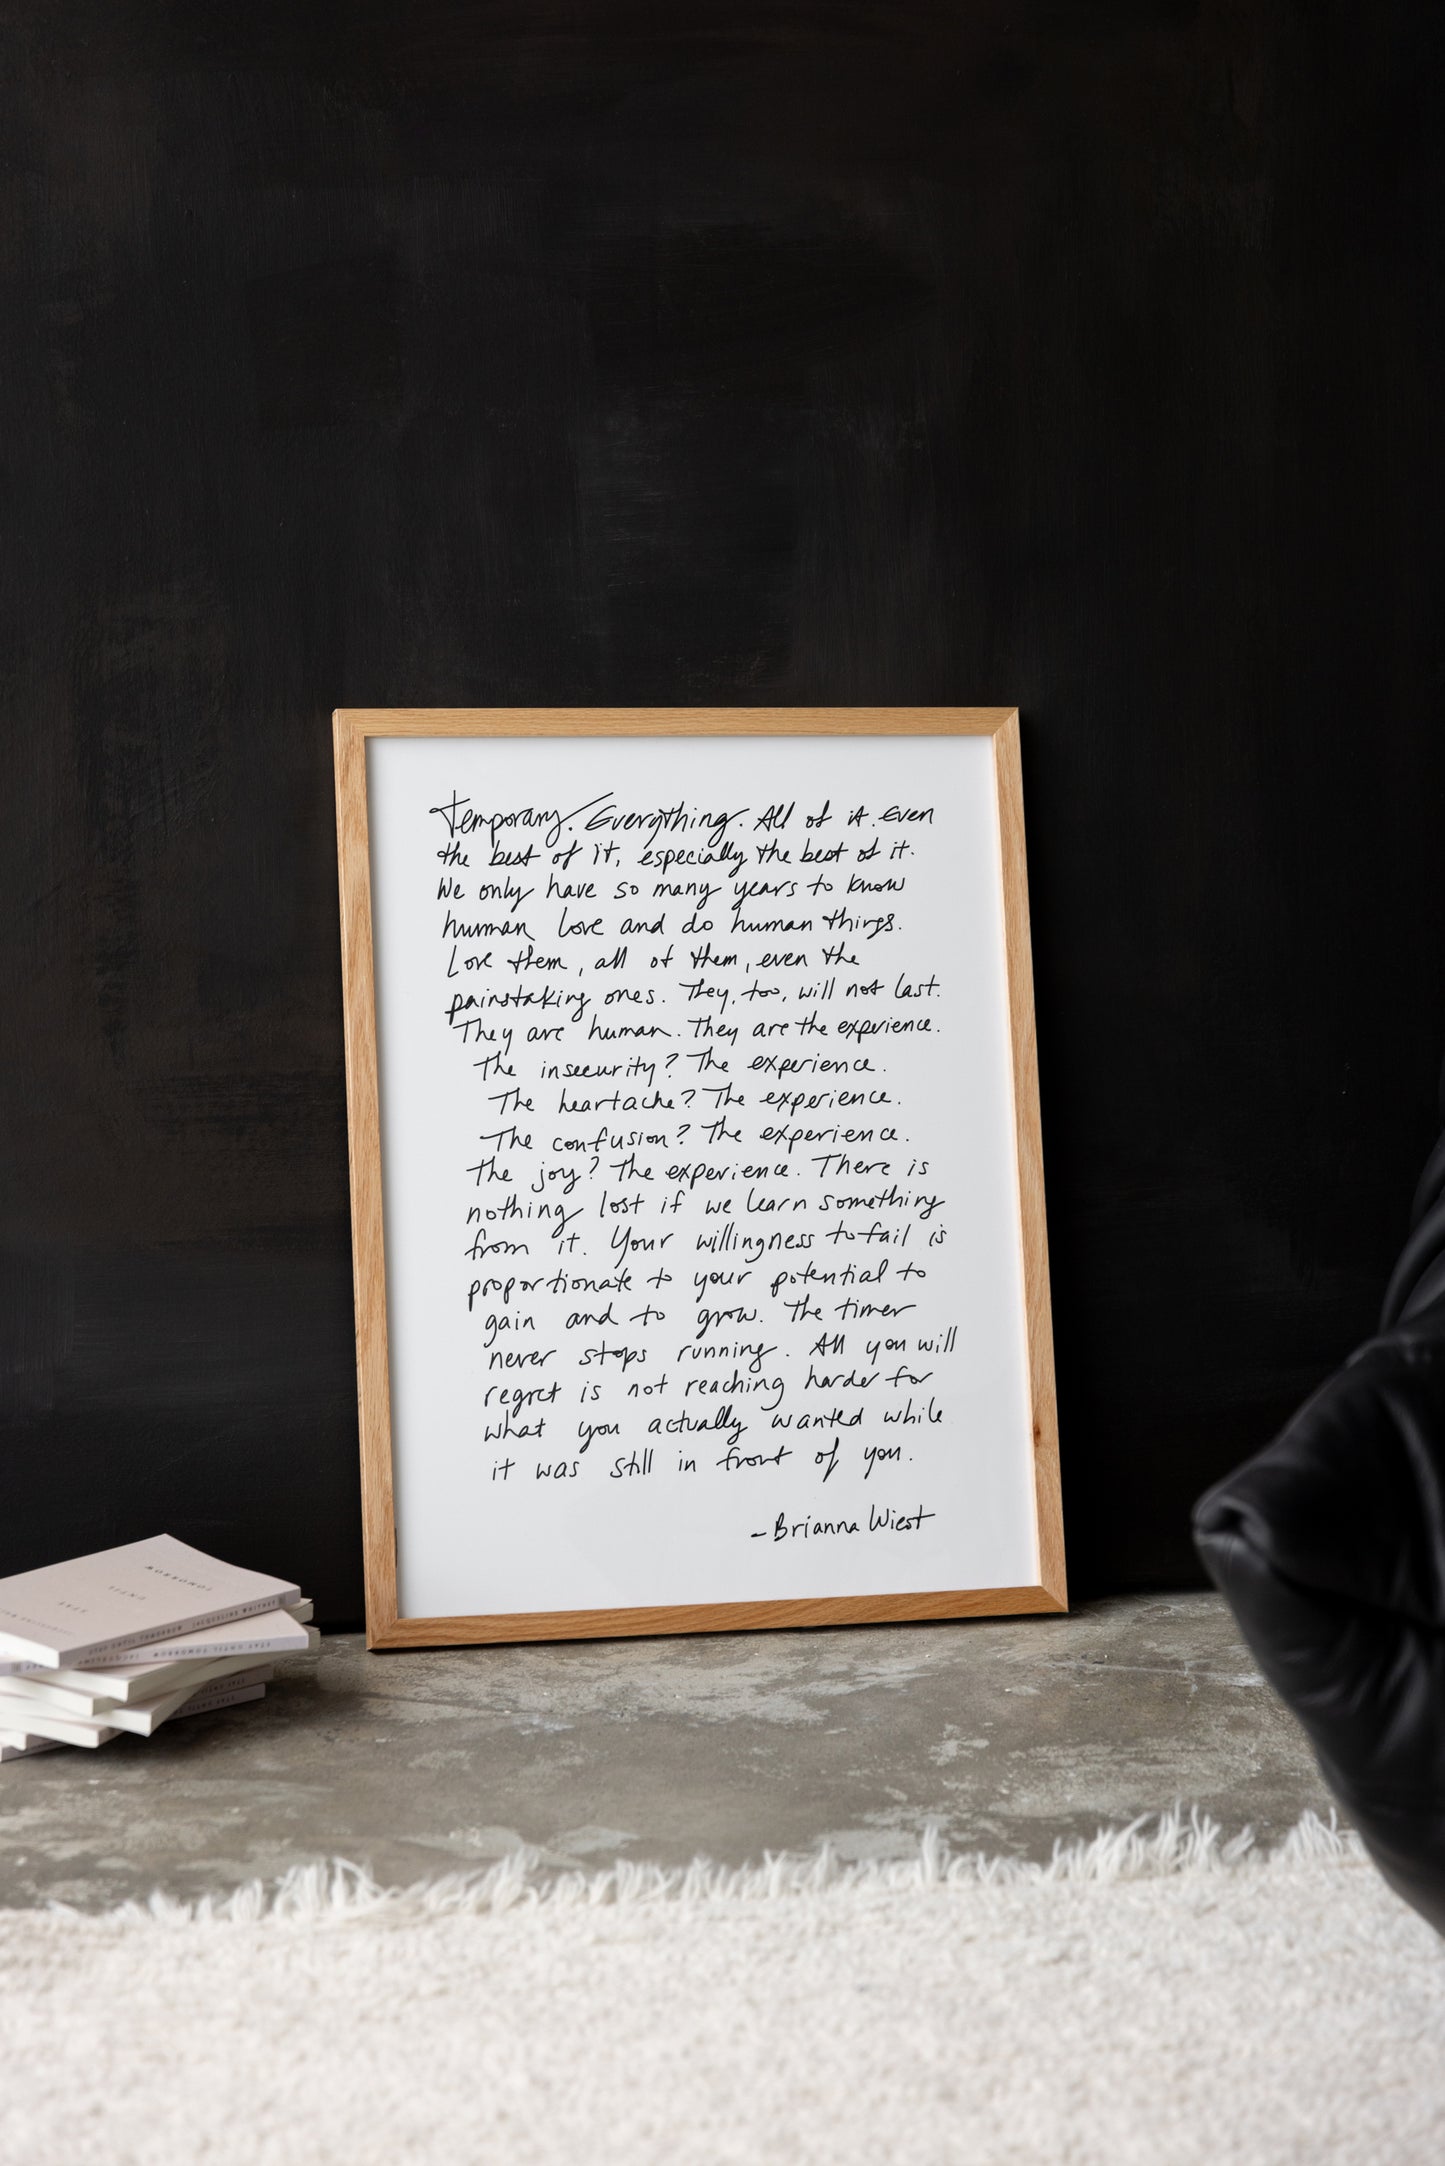 Temporary. Everything. All of it. Even
the best of it, especially the best of it.
We only have so many years to know
human love and do human things.
Love them, all of them, even the
painstaking ones. They, too, will not last.
They are human. They are the experience.
The insecurity? The experience.
The heartache? The experience.
The confusion? The experience.
The joy? The experience. There is
nothing lost if we learn something
from it. Your willingness to fail is
proportionate to your potential to
gain and to grow. The timer
never stops running. All you will
regret is not reaching harder for
what you actually wanted while
it was still in front of you.
- Brianna Wiest
STAY
UNTIL
TOMORROW
STAY UNTIL TOMORROW